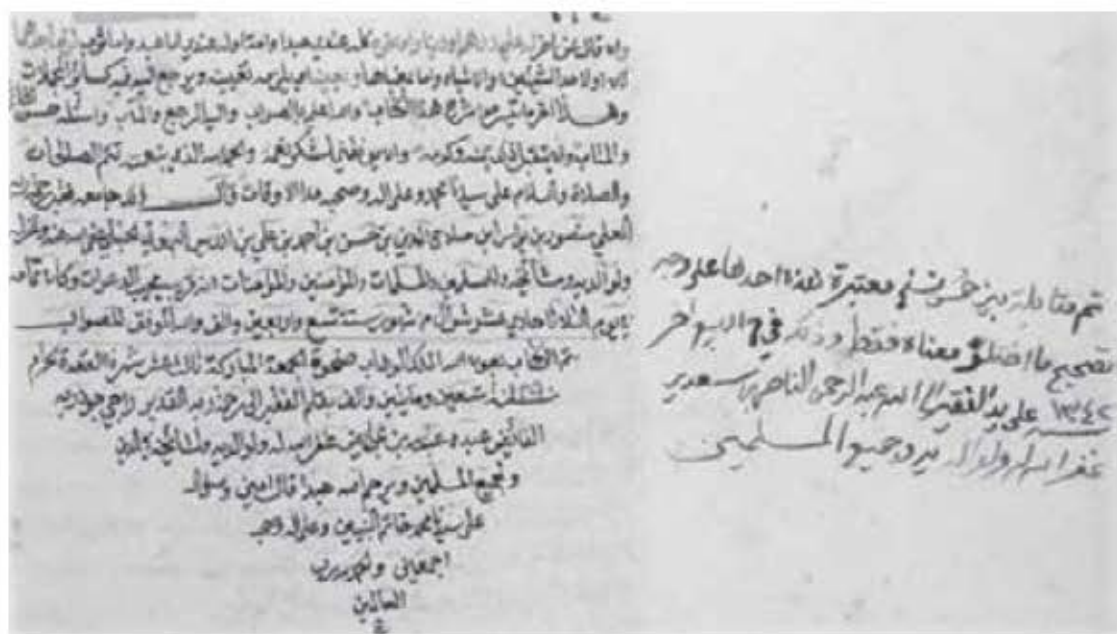 وان قال عن احدهما
لانه او لاحد الشيئين والاشياء وما بعينها ويرجع فيه كسائر المجملات
وهذا اخر ما تيسر من شرح هذا الكتاب والله اعلم بالصواب واليه المرجع والمآب واسئله حسن
والمتاب وان يتقبل بمنه وكرمه وان يوزعني لشكر نعمه والحمد لله الذي بنعمته تتم الصالحات
والصلاة والسلام على سيدنا محمد وعلى اله وصحبه مدا الاوقات قال جامعه
العلي منصور بن يونس ابن صلاح الدين بن حسن بن احمد بن علي بن ادريس البهوتي الحنبلي عفى الله عنه
ولوالديه ومشائخه والمسلمين والمسلمات والمؤمنين والمؤمنات انه قريب مجيب الدعوات وكان تمامه
يوم الثلاثا حادي عشر شوال من شهور سنة تسع واربعين والف والله الموفق للصواب
تم الكتاب بعون الله الملك الوهاب ضحوة الجمعة المباركة ثالث عشر شهر القعدة الحرام
تسعين ومايتين والف بقلم الفقير الى رحمة ربه القدير راجي جود ربه
الفائض عبده بن غفر الله له ولوالديه ولمشائخه
وجميع المسلمين ويرحم الله عبدا قال امين وصلى الله
على سيدنا محمد خاتم النبيين وعلى اله وصحبه
اجمعين والحمد لله رب
العالمين
تم مقابلة بين خمس نسخ معتبرة هذه احدها على وجه
تصحيح ما اختلف معناه فقط وذلك في ٦ ربيع اخر
١٣٤٢ على يد الفقير الى الله عبد الرحمن الناصر بن سعدي
غفر الله له ولوالديه وجميع المسلمين